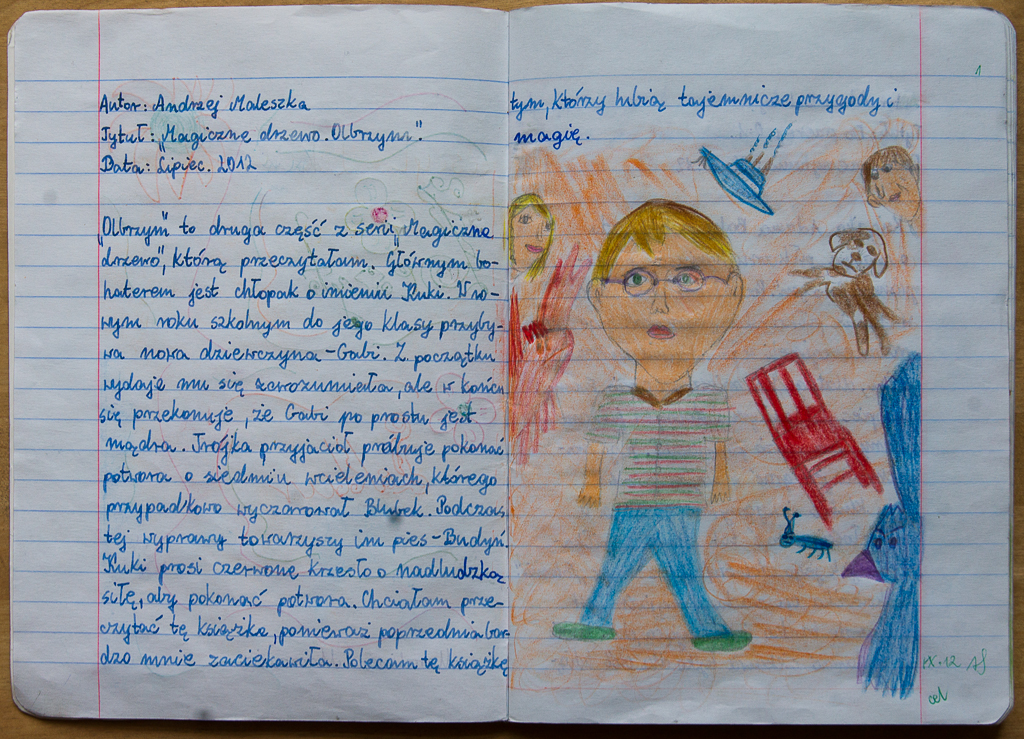 Autor: Andrzej Maleszka
Tytuł: „Magiczne drzewo. Olbrzym".
Data: Lipiec. 2012
„Olbrzym" to druga część z serii „Magiczne
drzewo", którą przeczytałam. Głównym bo-
haterem jest chłopak o imieniu Kuki. W no-
wym roku szkolnym do jego klasy przyby-
wa nowa dziewczyna - Gabi. Z początku
wydaje mu się zarozumiała, ale w końcu
się przekonuje, że Gabi po prostu jest
mądra. Trójka przyjaciół próbuje pokonać
potwora o siedmiu wcieleniach, którego
przypadkowo wyczarował Blubek. Podczas
tej wyprawy towarzyszy im pies - Budyń.
Kuki prosi czerwone krzesło o nadludzką
siłę, aby pokonać potwora. Chciałam prze-
czytać tę książkę, ponieważ poprzednia bar-
dzo mnie zaciekawiła. Polecam tę książkę
tym, którzy lubią tajemnicze przygody i
magię.
1
IX.12
cel